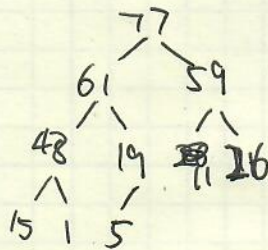 77
61 59
48 19 11 26
15 1 5